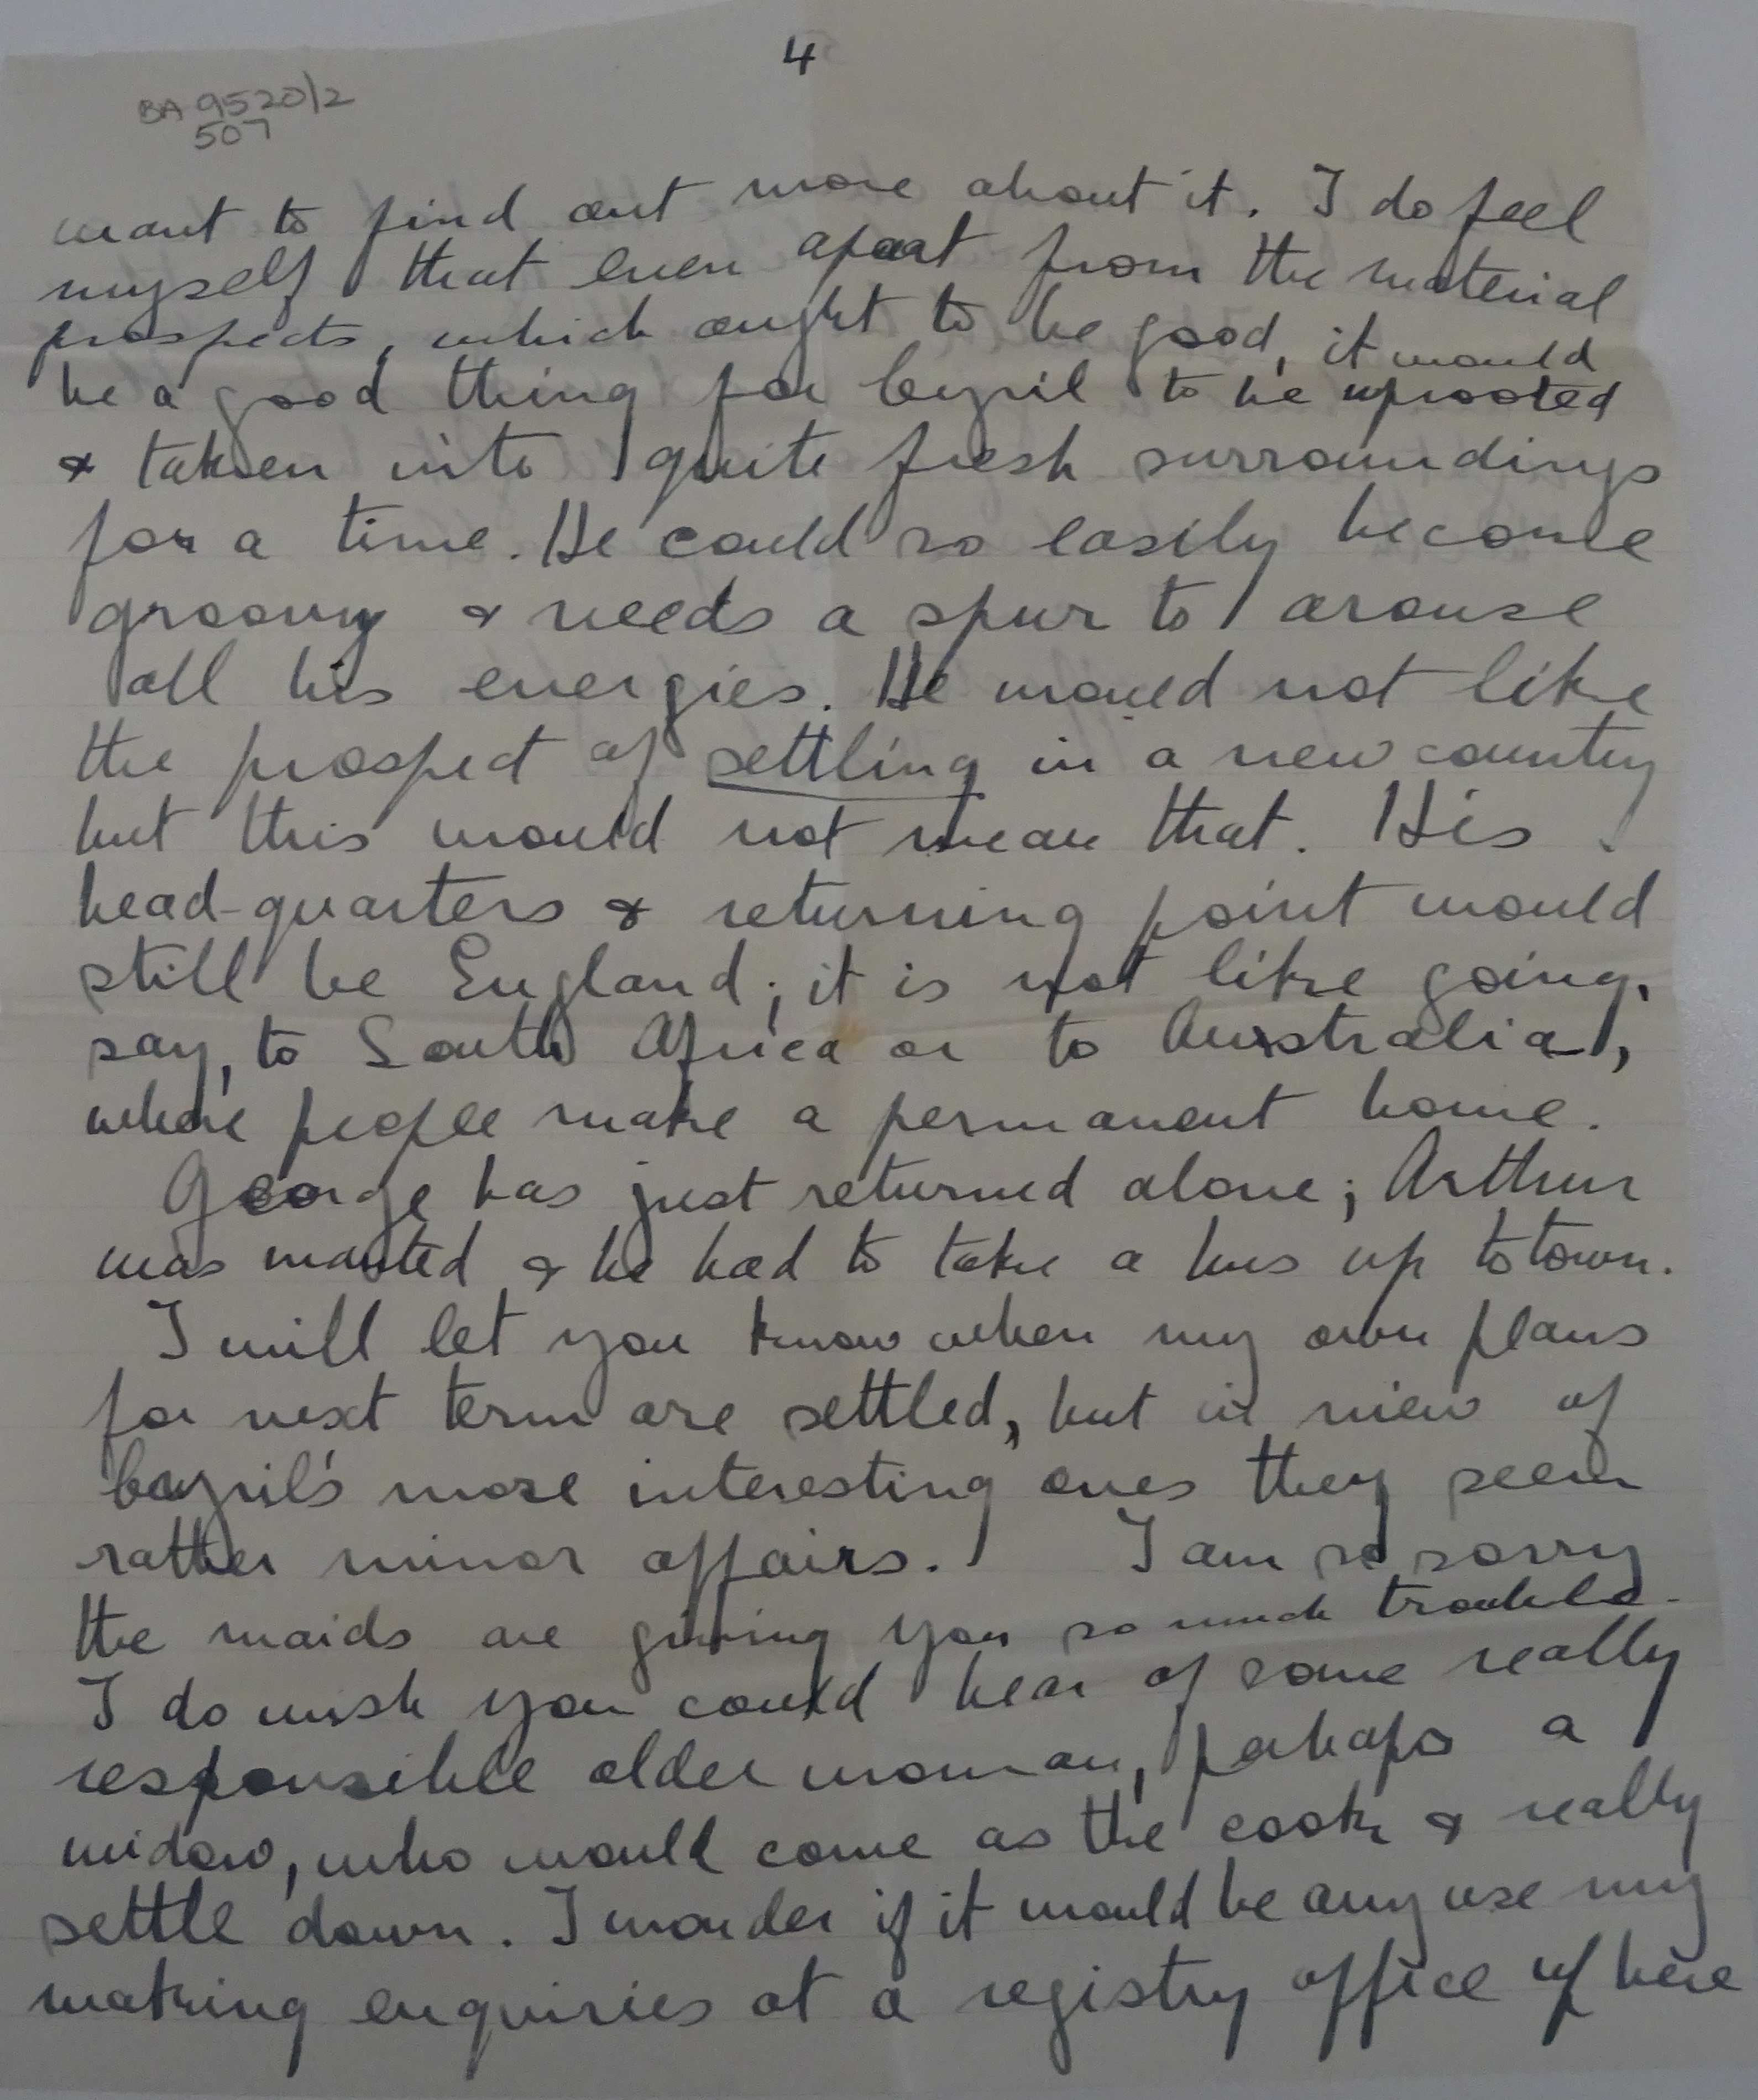 4
BA 9520/2
507
want to find out more about it. I do feel
myself that even apart from the material
prospects, which ought to be good, it would
be a good thing for Cyril to be uprooted
& taken into quite fresh surroundings
for a time. He could so easily become
groovy & needs a spur to arouse
all his energies. He would not like
the prospect of settling in a new country
but this would not mean that. His
head-quarters & returning point would
still be England; it is not like going,
say, to South Africa or to Australia,
where people make a permanent home.
George has just returned alone; Arthur
was wanted & he had to take a bus up to town.
I will let you know when my own plans
for next term are settled, but in view of
Cyril's more interesting ones they seem
rather minor affairs. I am so sorry
the maids are giving you so much trouble.
I do wish you could hear of some really
responsible older woman, perhaps a
widow, who would come as the cook & really
settle down. I wonder if it would be any use my
making enquiries at a registry office up here